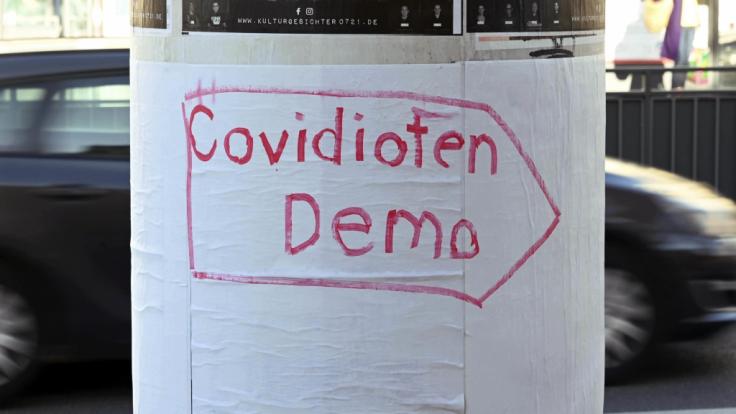 WWW.KULTURGESICHTER0721.DE
Covidioten
Demo